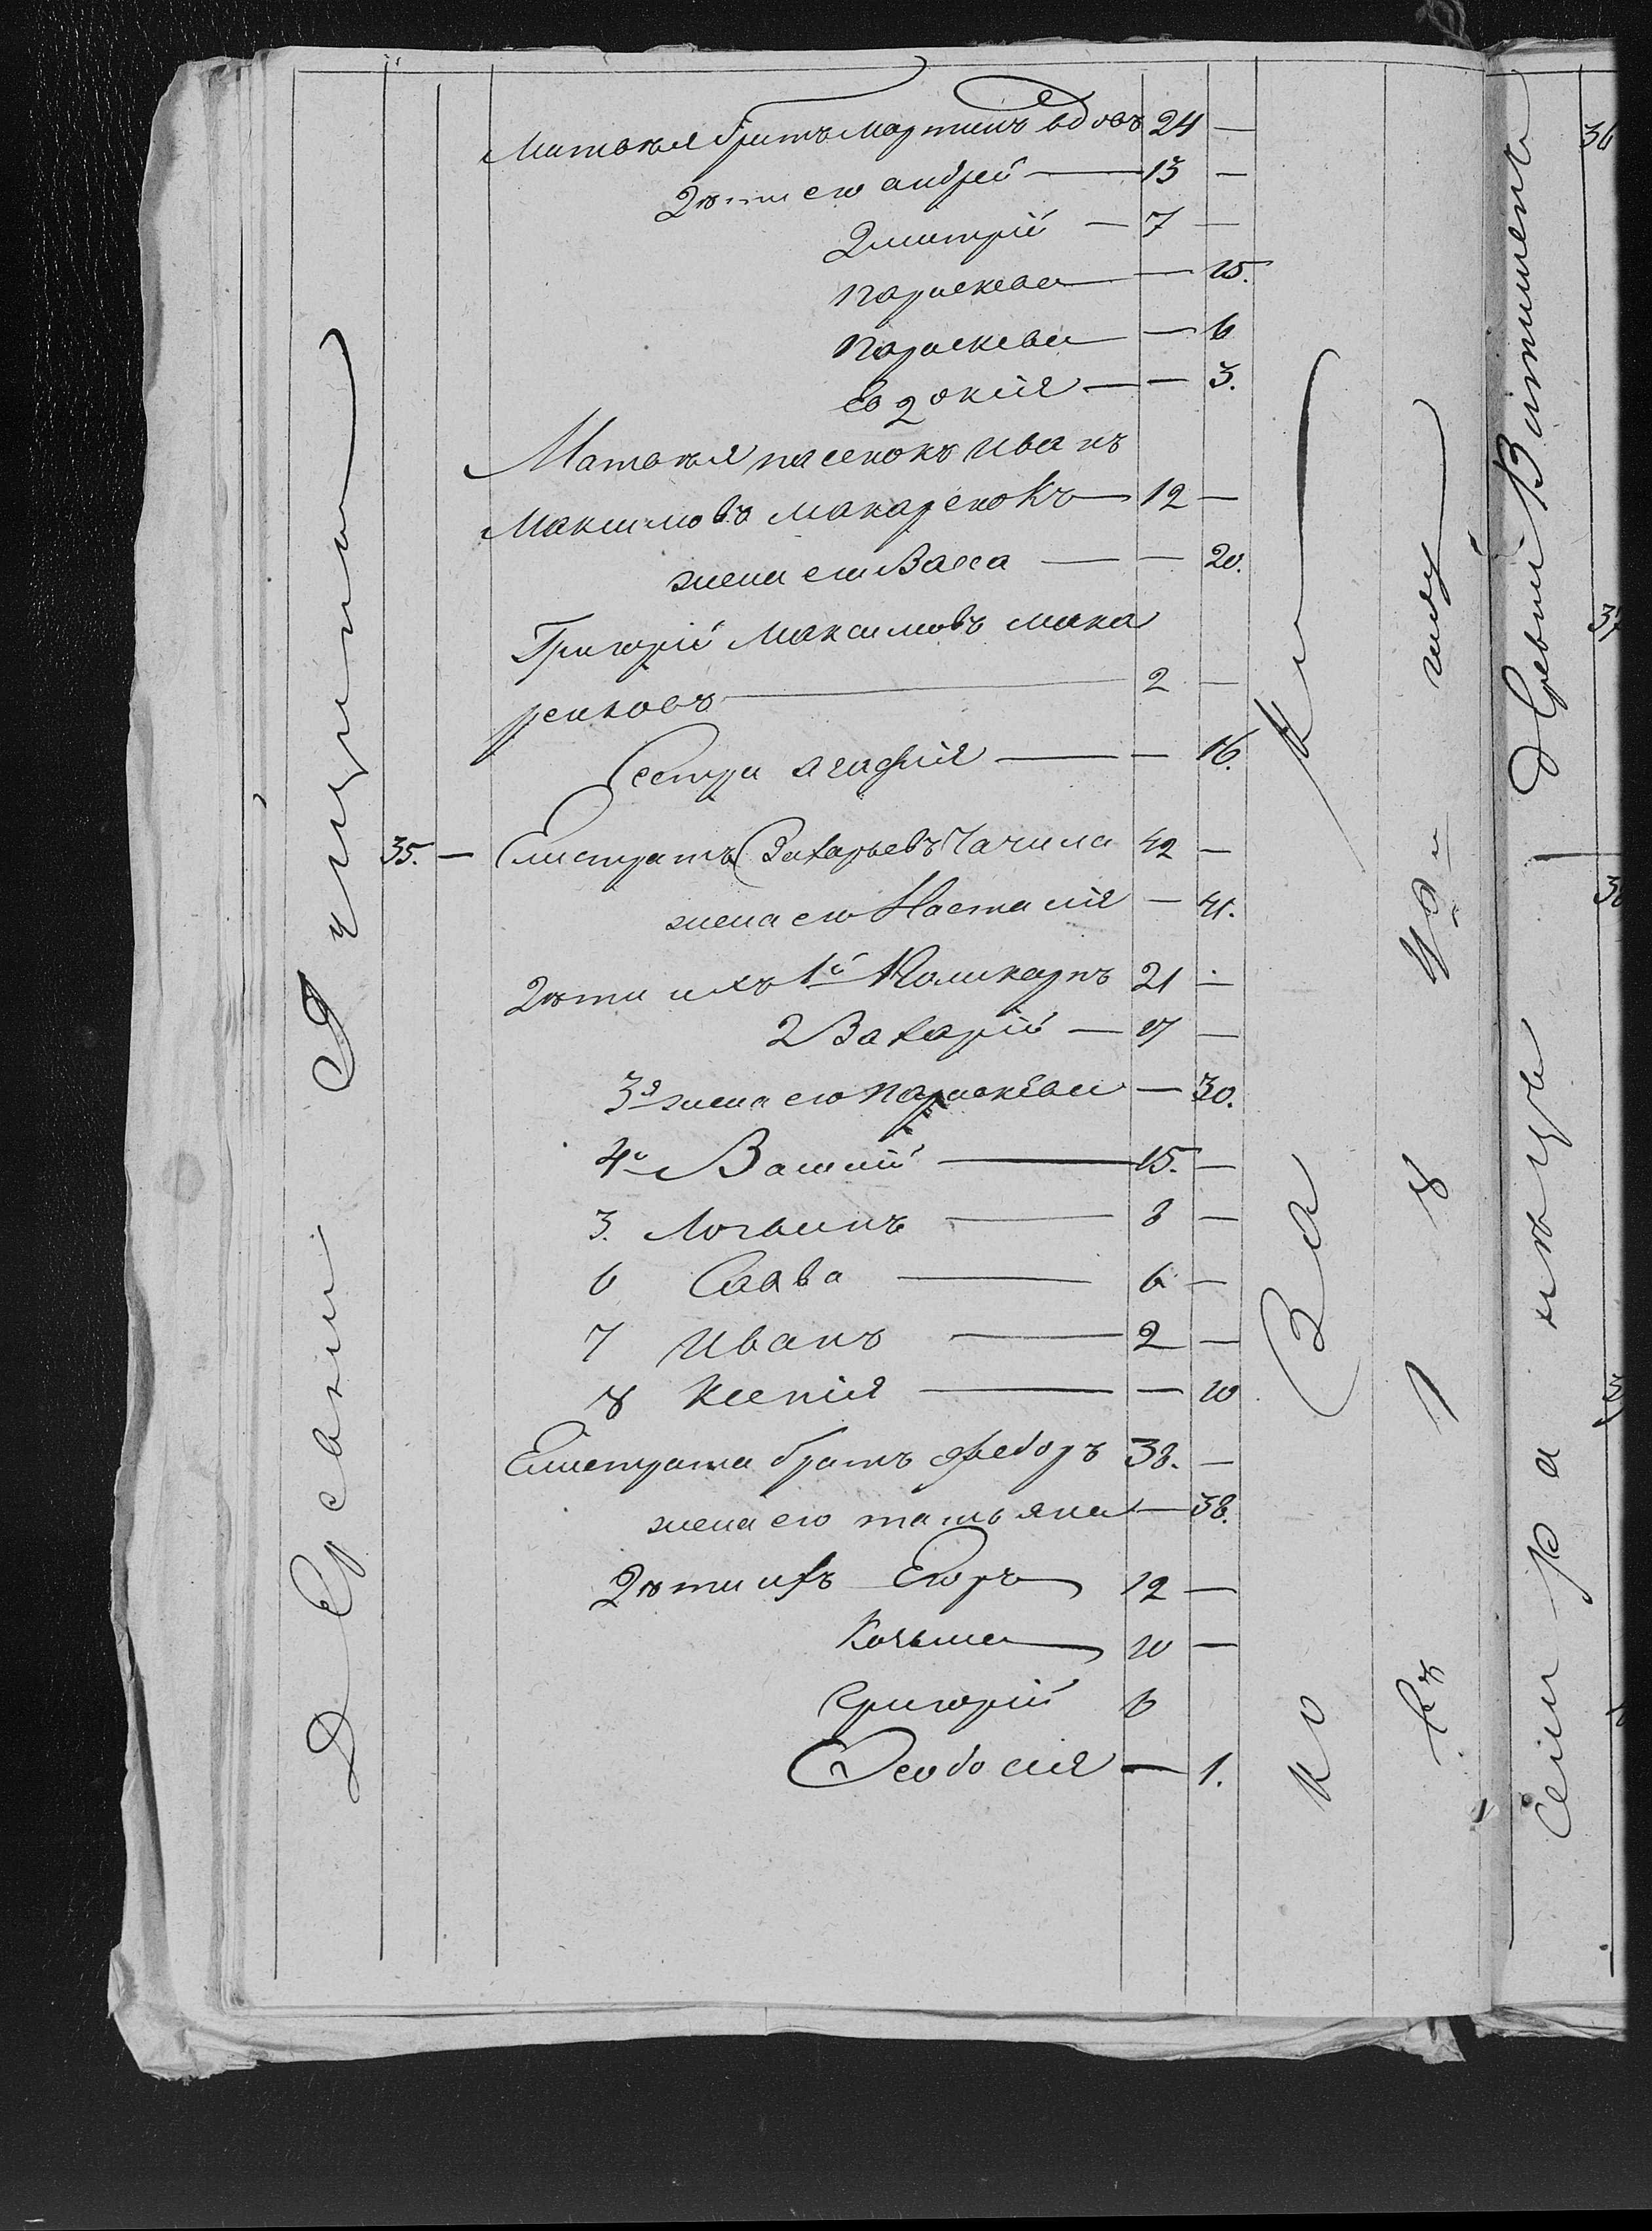 Матвѣя братъ Мартинъ вдовъ 24 —
Дѣти его андрей — 13 —
Дмитрій — 7 —
параскева — 15.
параскева — 6
Евдокія — — 3.
Матвѣя пасенокъ иванъ
Максимовъ макаренокъ — 12 —
жена его Васса — — 20.
Григорій Максимовъ мака
ренковъ — 2 —
Сестра агафія — — 16.
35. — Елистратъ Захарьевъ Чачила 42 —
жена его Настасія — 41.
Дѣти ихъ 1й Поликарпъ 21 —
2 Захарій — 17 —
3я жена его параскева — 30.
4й Василій — 15. —
3. Логвинъ — 8 —
6 Савва — 6 —
7 Иванъ — 2 —
8 Ксенія — — 10
Елистрата братъ Федоръ 38. —
жена его татьяна — 38.
Дѣти ихъ Егоръ 12 —
Козьма 10 —
Григорій 6
Феодосія — 1.
Деревни
ко За
въ 1 8
Деревни
36
37